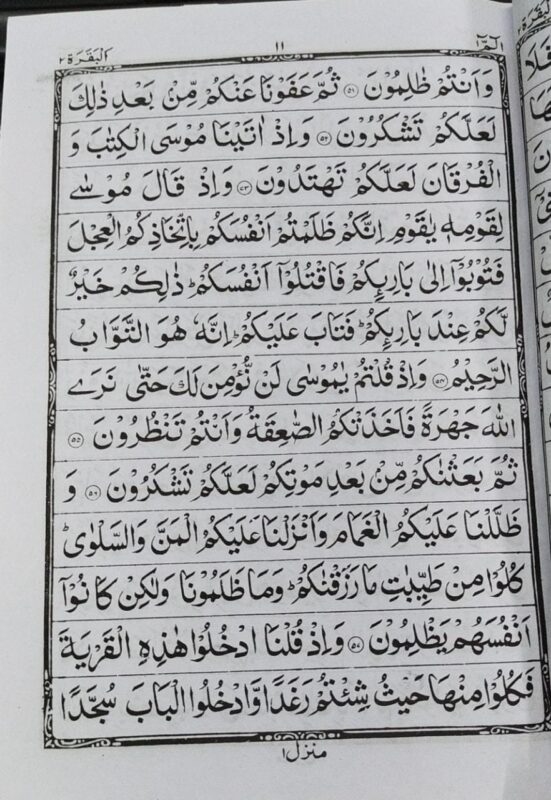 الٓمّٓ ١ ١١ البقرة ٢
وَاَنْتُمْ ظٰلِمُوْنَ ﴿٥١﴾ ثُمَّ عَفَوْنَا عَنْكُمْ مِّنْۢ بَعْدِ ذٰلِكَ
لَعَلَّكُمْ تَشْكُرُوْنَ ﴿٥٢﴾ وَاِذْ اٰتَيْنَا مُوْسَى الْكِتٰبَ وَ
الْفُرْقَانَ لَعَلَّكُمْ تَهْتَدُوْنَ ﴿٥٣﴾ وَاِذْ قَالَ مُوْسٰى
لِقَوْمِهٖ يٰقَوْمِ اِنَّكُمْ ظَلَمْتُمْ اَنْفُسَكُمْ بِاتِّخَاذِكُمُ الْعِجْلَ
فَتُوْبُوْٓا اِلٰى بَارِئِكُمْ فَاقْتُلُوْٓا اَنْفُسَكُمْ ؕ ذٰلِكُمْ خَيْرٌ
لَّكُمْ عِنْدَ بَارِئِكُمْ ؕ فَتَابَ عَلَيْكُمْ ؕ اِنَّهٗ هُوَ التَّوَّابُ
الرَّحِيْمُ ﴿٥٤﴾ وَاِذْ قُلْتُمْ يٰمُوْسٰى لَنْ نُّؤْمِنَ لَكَ حَتّٰى نَرَى
اللّٰهَ جَهْرَةً فَاَخَذَتْكُمُ الصّٰعِقَةُ وَاَنْتُمْ تَنْظُرُوْنَ ﴿٥٥﴾
ثُمَّ بَعَثْنٰكُمْ مِّنْۢ بَعْدِ مَوْتِكُمْ لَعَلَّكُمْ تَشْكُرُوْنَ ﴿٥٦﴾ وَ
ظَلَّلْنَا عَلَيْكُمُ الْغَمَامَ وَاَنْزَلْنَا عَلَيْكُمُ الْمَنَّ وَالسَّلْوٰى ؕ
كُلُوْا مِنْ طَيِّبٰتِ مَا رَزَقْنٰكُمْ ؕ وَمَا ظَلَمُوْنَا وَلٰكِنْ كَانُوْٓا
اَنْفُسَهُمْ يَظْلِمُوْنَ ﴿٥٧﴾ وَاِذْ قُلْنَا ادْخُلُوْا هٰذِهِ الْقَرْيَةَ
فَكُلُوْا مِنْهَا حَيْثُ شِئْتُمْ رَغَدًا وَّادْخُلُوا الْبَابَ سُجَّدًا
منزل ١